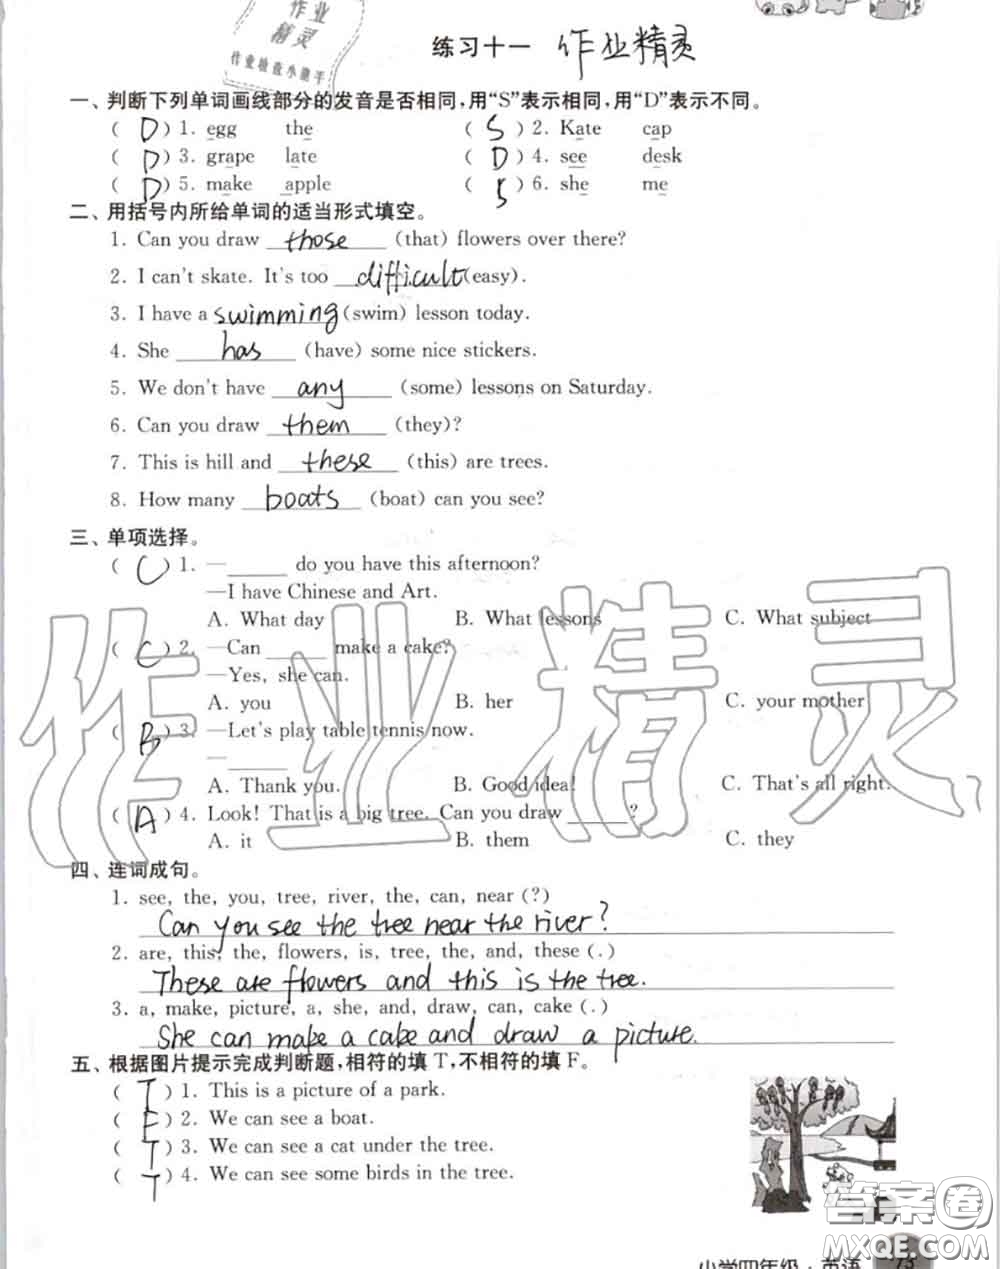 作业
精灵
作业检查小能手
练习十一 作业精灵
一、判断下列单词画线部分的发音是否相同,用“S”表示相同,用“D”表示不同。
( D ) 1. egg the ( S ) 2. Kate cap
( D ) 3. grape late ( D ) 4. see desk
( D ) 5. make apple ( S ) 6. she me
二、用括号内所给单词的适当形式填空。
1. Can you draw those (that) flowers over there?
2. I can't skate. It's too difficult (easy).
3. I have a swimming (swim) lesson today.
4. She has (have) some nice stickers.
5. We don't have any (some) lessons on Saturday.
6. Can you draw them (they)?
7. This is hill and these (this) are trees.
8. How many boats (boat) can you see?
三、单项选择。
( C ) 1. —______ do you have this afternoon?
—I have Chinese and Art.
A. What day B. What lessons C. What subject
( C ) 2. —Can ______ make a cake?
—Yes, she can.
A. you B. her C. your mother
( B ) 3. —Let's play table tennis now.
—______
A. Thank you. B. Good idea! C. That's all right.
( A ) 4. Look! That is a big tree. Can you draw ______?
A. it B. them C. they
作业精灵
四、连词成句。
1. see, the, you, tree, river, the, can, near (?)
Can you see the tree near the river?
2. are, this, the, flowers, is, tree, the, and, these (.)
These are flowers and this is the tree.
3. a, make, picture, a, she, and, draw, can, cake (.)
She can make a cake and draw a picture.
五、根据图片提示完成判断题,相符的填 T,不相符的填 F。
( T ) 1. This is a picture of a park.
( F ) 2. We can see a boat.
( T ) 3. We can see a cat under the tree.
( T ) 4. We can see some birds in the tree.
答案圈
MXQE.COM
小学四年级·英语 73